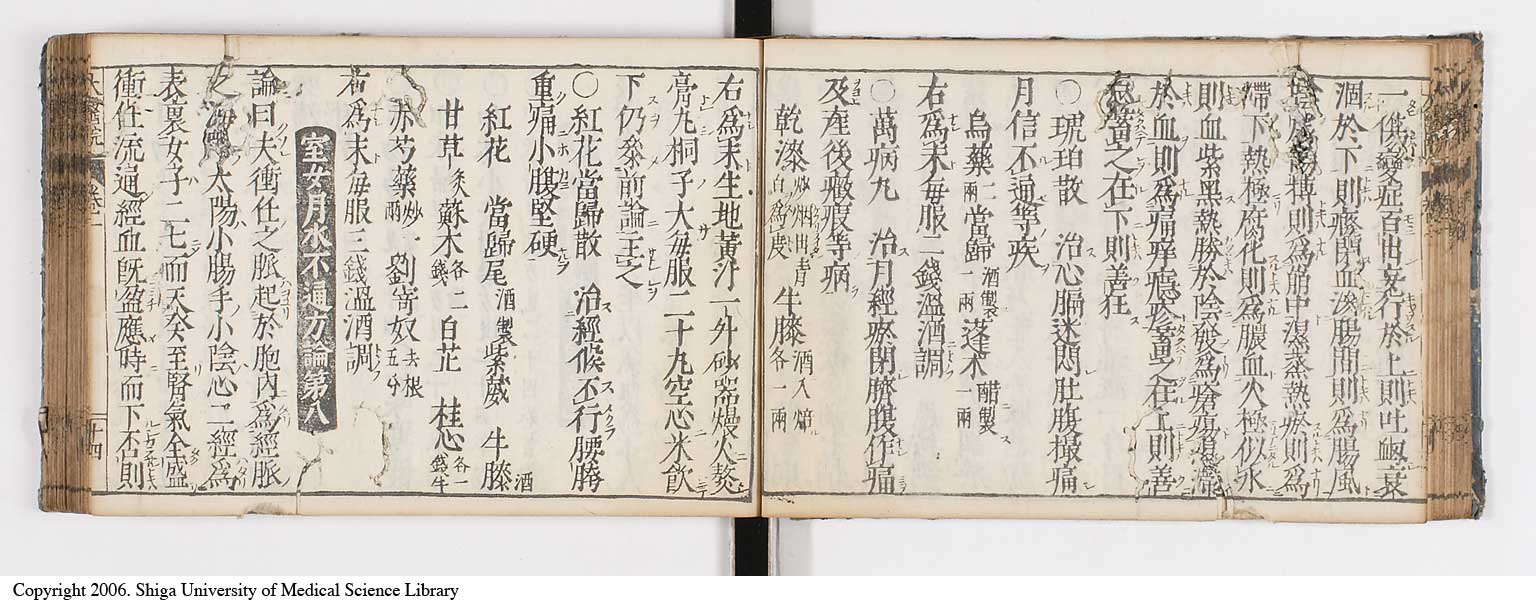 一供變症百出妄行於上則吐衄衰
涸於下則瘀閉血滲腸間則爲腸風
搏則爲崩中濕蒸熱瘀則爲
滯下熱極腐化則爲膿血火極似水
則血紫黑熱勝於陰發爲瘡瘍濕滯
於血則爲痛痒癮疹畜之在上則善
忘畜之在下則善狂
○琥珀散 治心膈迷悶肚腹撮痛
月信不通等疾
烏藥二兩當歸酒製一兩蓬朮醋製一兩
右爲末每服二錢溫酒調
○萬病丸 治月經瘀閉臍腹作痛
及產後癥瘕等病
乾漆炒烟出青白爲度 牛膝酒入焙各一兩
右爲末生地黃汁一升砂器熳火熬
膏丸桐子大每服二十九空心米飲
下仍參前論主之
○紅花當歸散 治經候不行腰胯
重痛小腹堅硬
紅花 當歸尾酒製紫葳 牛膝酒
甘草炙蘇木各二錢白芷 桂心各一錢半
赤芍藥炒一兩劉寄奴去根五分
右爲末每服三錢溫酒調
室女月水不通方論第八
論曰夫衝任之脈起於胞內爲經脈
之海 太陽小腸手小陰心二經爲
表裏女子二七而天癸至腎氣全盛
衝任流通經血既盈應時而下否則
廿四
Copyright 2006. Shiga University of Medical Science Library